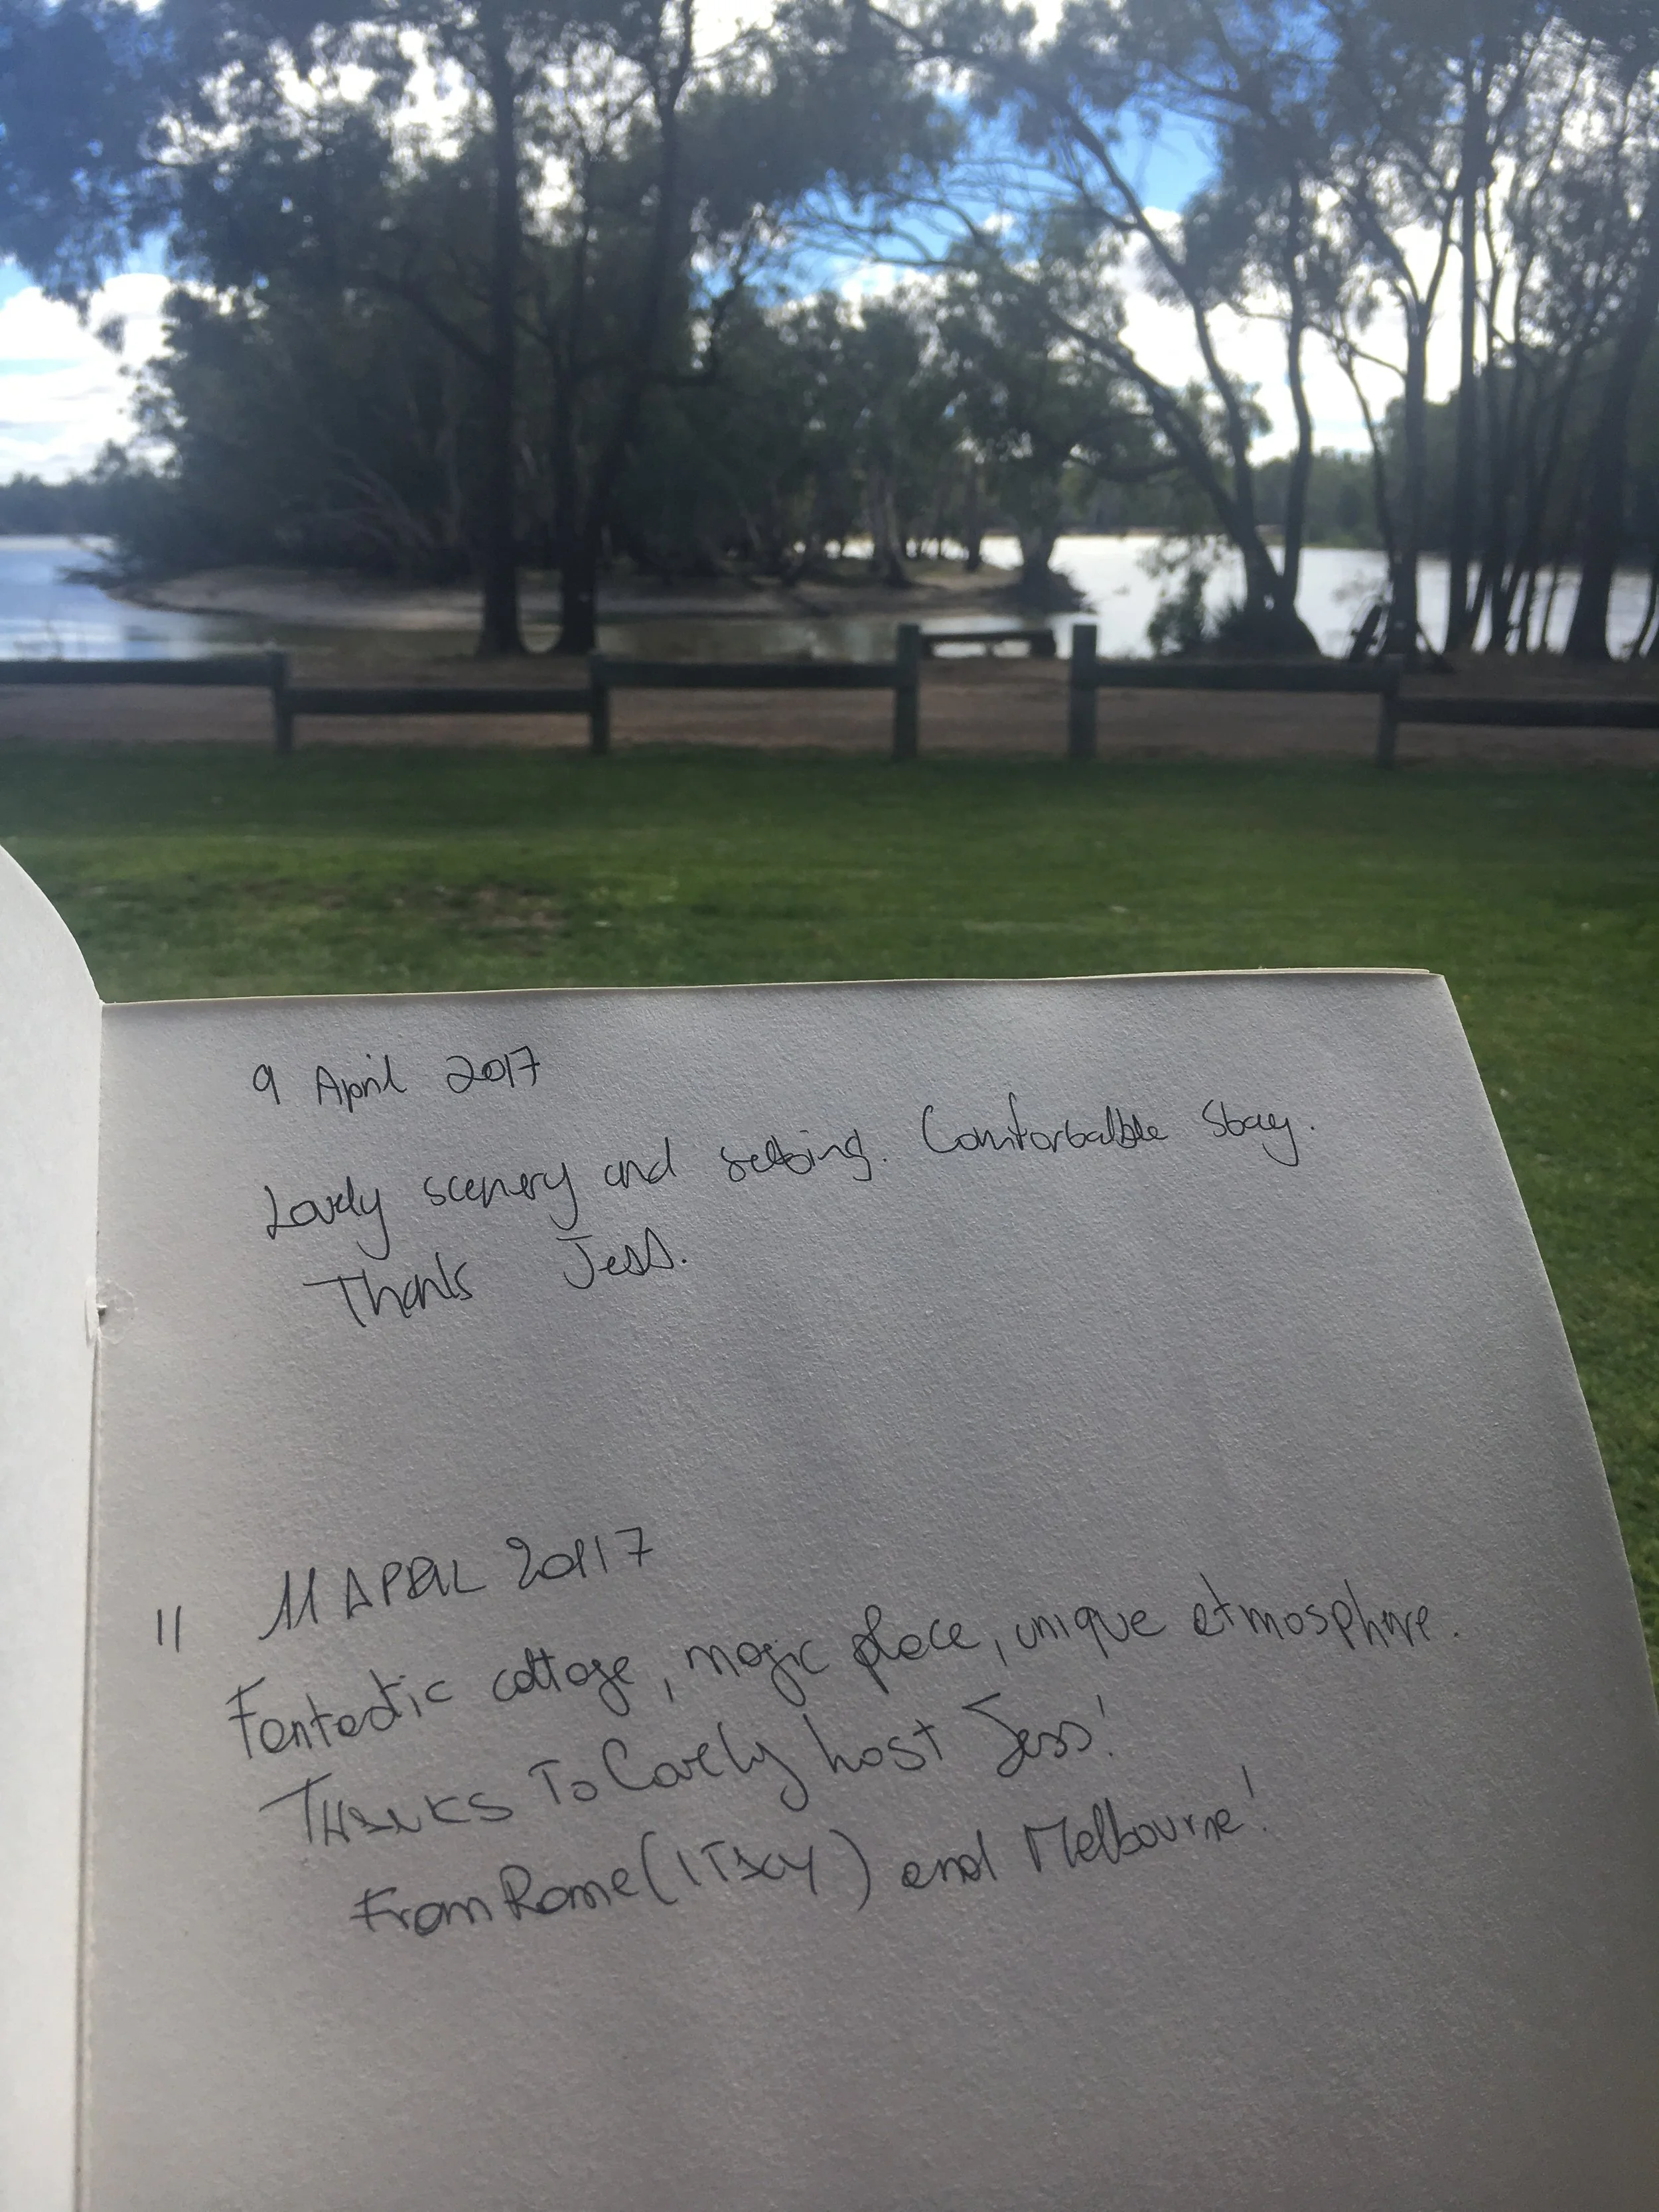 9 April 2017
Lovely scenery and setting. Comfortable stay.
Thanks Jess.
11 APRIL 2017
11
Fantastic cottage, magic place, unique atmosphere.
THANKS TO Lovely host Jess!
From Rome (ITALY) and Melbourne!